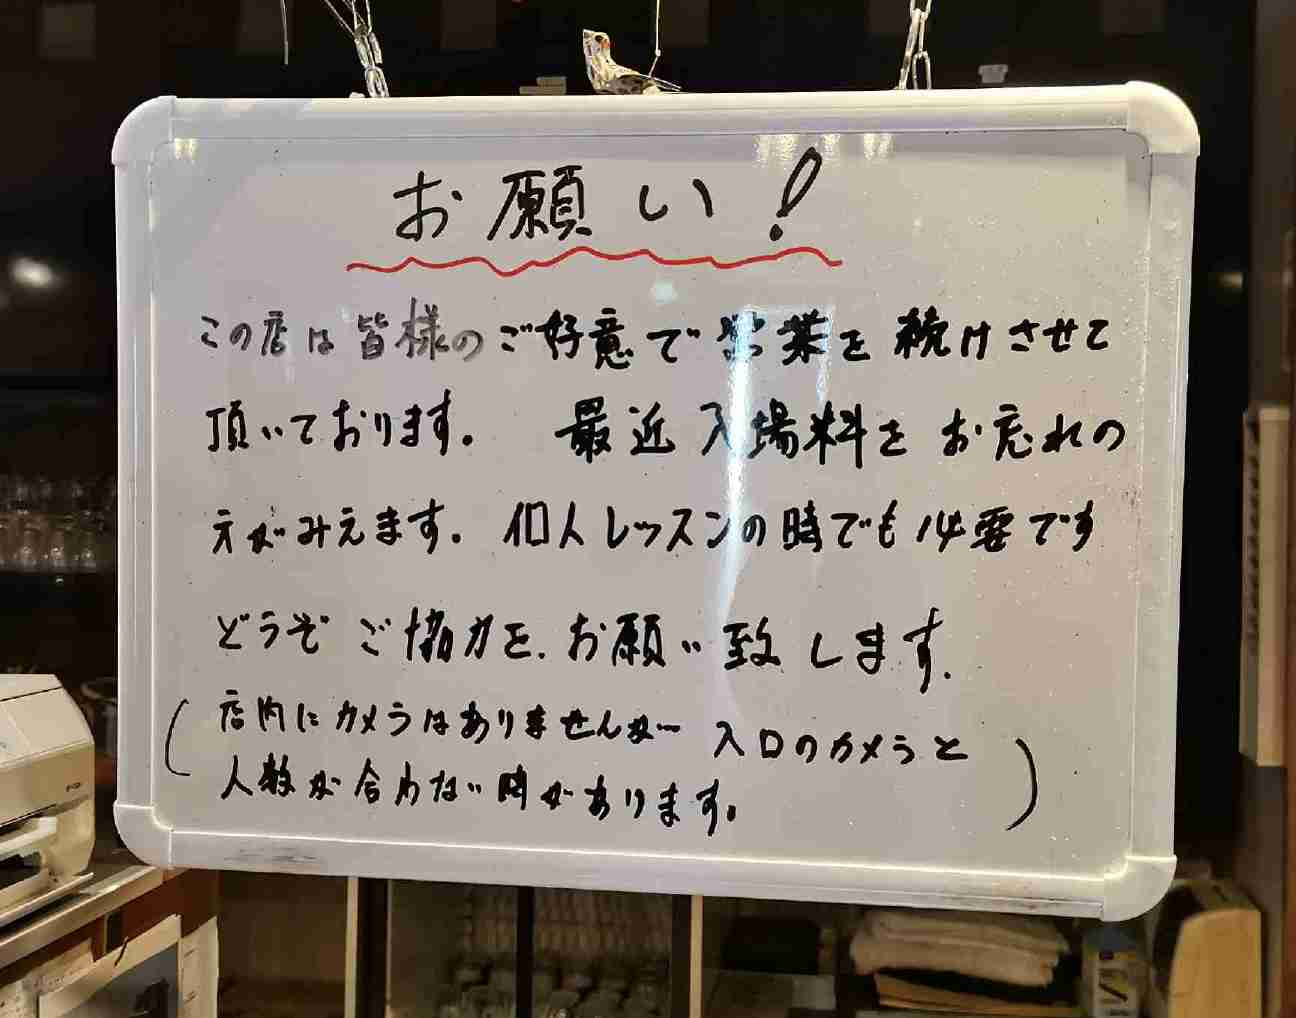 お願い!
この店は皆様のご好意で営業を続けさせて
頂いております。 最近入場料をお忘れの
方がみえます。個人レッスンの時でも必要です
どうぞご協力を、お願い致します.
(店内にカメラはありませんが… 入口のカメラと
人数が合わない時があります。)